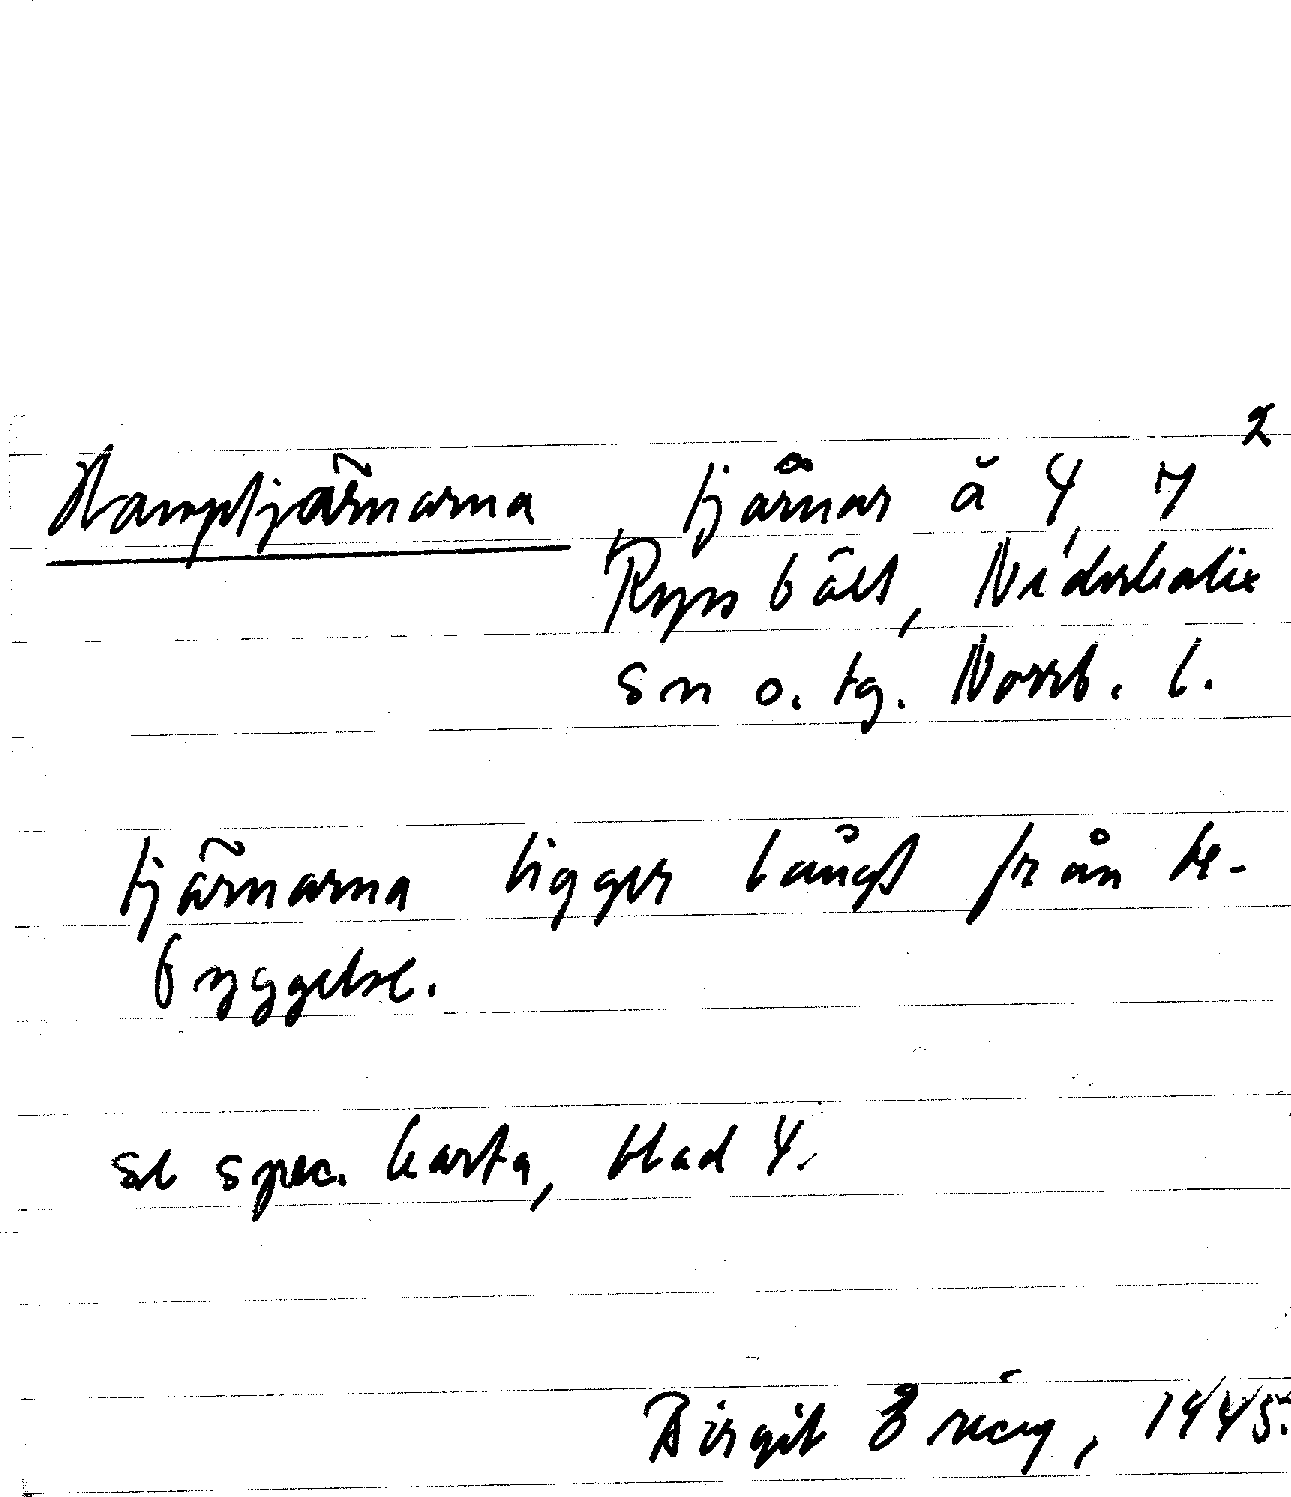 2
Kamptjärnarna tjärnar å 4, 7
Rysbält, Nederkalix
sn o. tg. Norrb. l.
tjärnarna ligger långt från be-
byggelse.
se spec. karta, blad 4.
Birgit 1945.